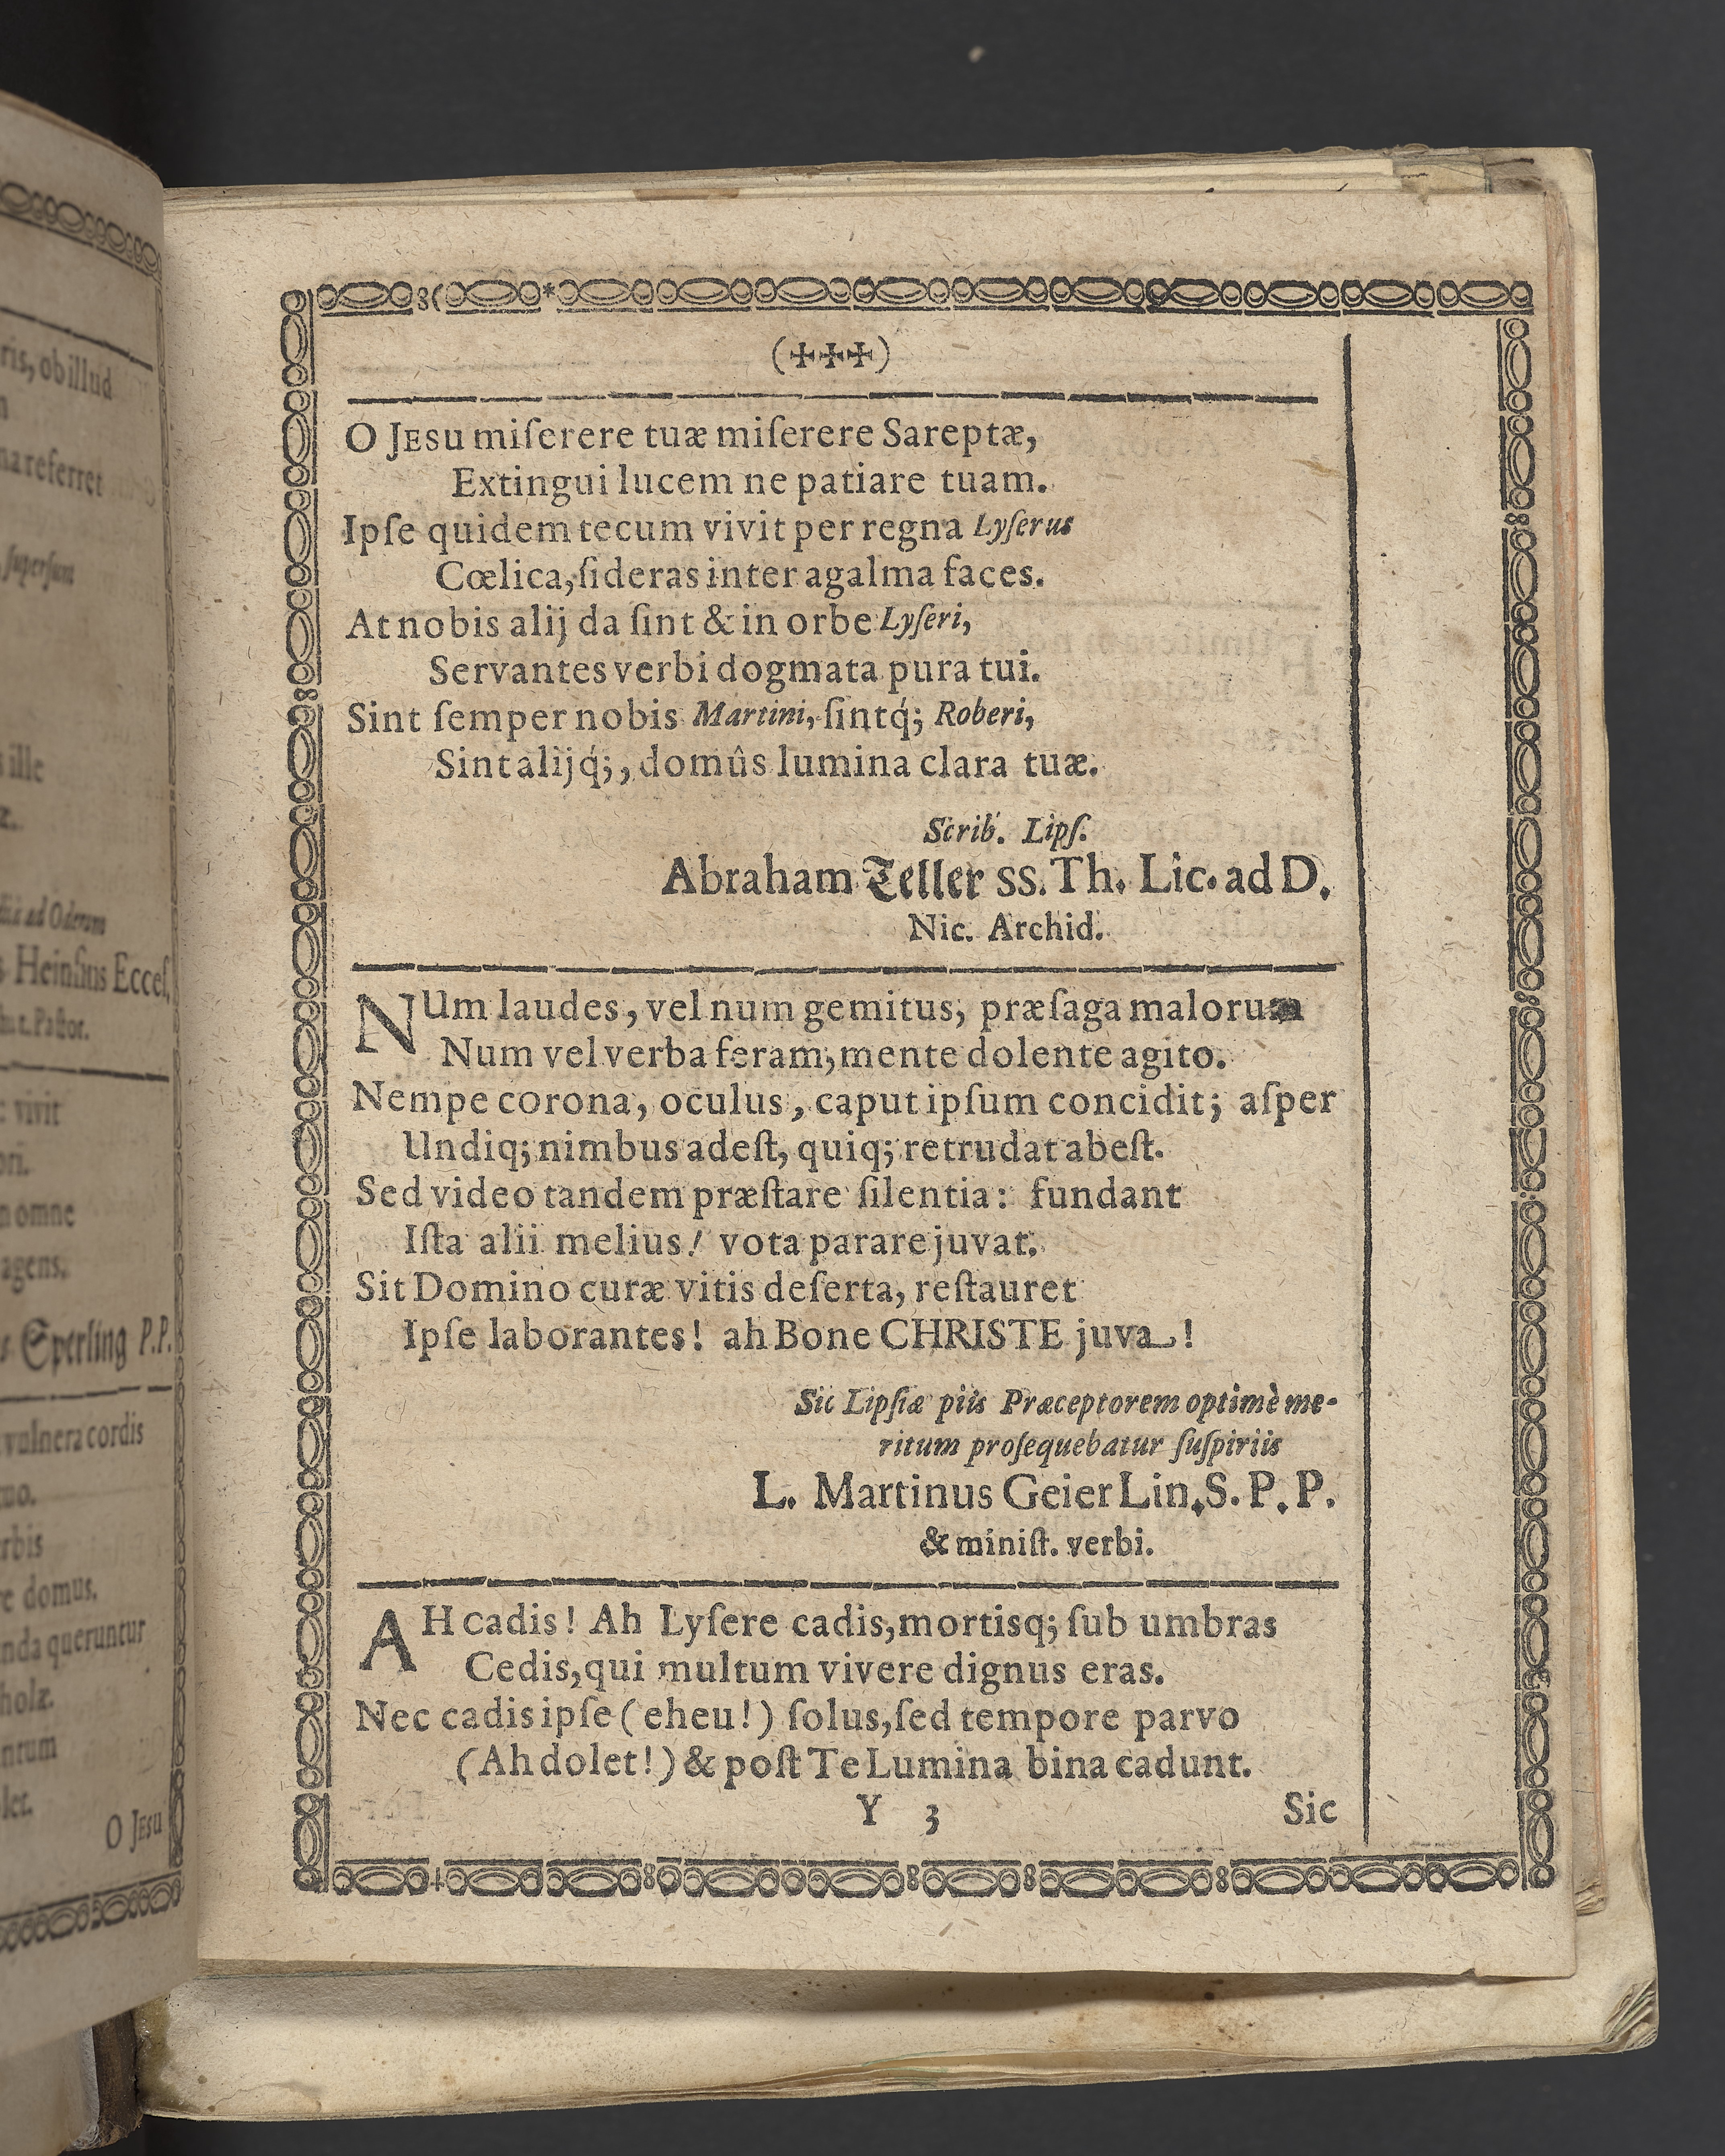 ris, ob illud
na referret
superſunt
s ille
æ.
ad Oderam
s Heinſius Eccleſ.
t. Paſtor.
c vivit
ori.
n omne
agens.
s Sperling P.P.
vulnera cordis
uo.
rbis
re domus.
nda queruntur
holæ.
ntum
let.
O JESU
(✠✠✠)
O JESU miſerere tuæ miſerere Sareptæ,
Extingui lucem ne patiare tuam.
Ipſe quidem tecum vivit per regna Lyſerus
Cœlica, ſideras inter agalma faces.
At nobis alij da ſint & in orbe Lyſeri,
Servantes verbi dogmata pura tui.
Sint ſemper nobis Martini, ſintq́; Roberi,
Sint alijq́;, domûs lumina clara tuæ.
Scrib. Lipſ.
Abraham Teller SS. Th. Lic. ad D.
Nic. Archid.
NUm laudes, vel num gemitus, præſaga malorum
Num vel verba feram, mente dolente agito.
Nempe corona, oculus, caput ipſum concidit; aſper
Undiq; nimbus adeſt, quiq; retrudat abeſt.
Sed video tandem præſtare ſilentia: fundant
Iſta alii melius! vota parare juvat.
Sit Domino curæ vitis deſerta, reſtauret
Ipſe laborantes! ah Bone CHRISTE juva!
Sic Lipſiæ piis Præceptorem optimè me-
ritum proſequebatur ſuſpiriis
L. Martinus Geier Lin. S. P. P.
& miniſt. verbi.
AH cadis! Ah Lyſere cadis, mortisq; ſub umbras
Cedis, qui multum vivere dignus eras.
Nec cadis ipſe (eheu!) ſolus, ſed tempore parvo
(Ah dolet!) & poſt Te Lumina bina cadunt.
Y 3
Sic